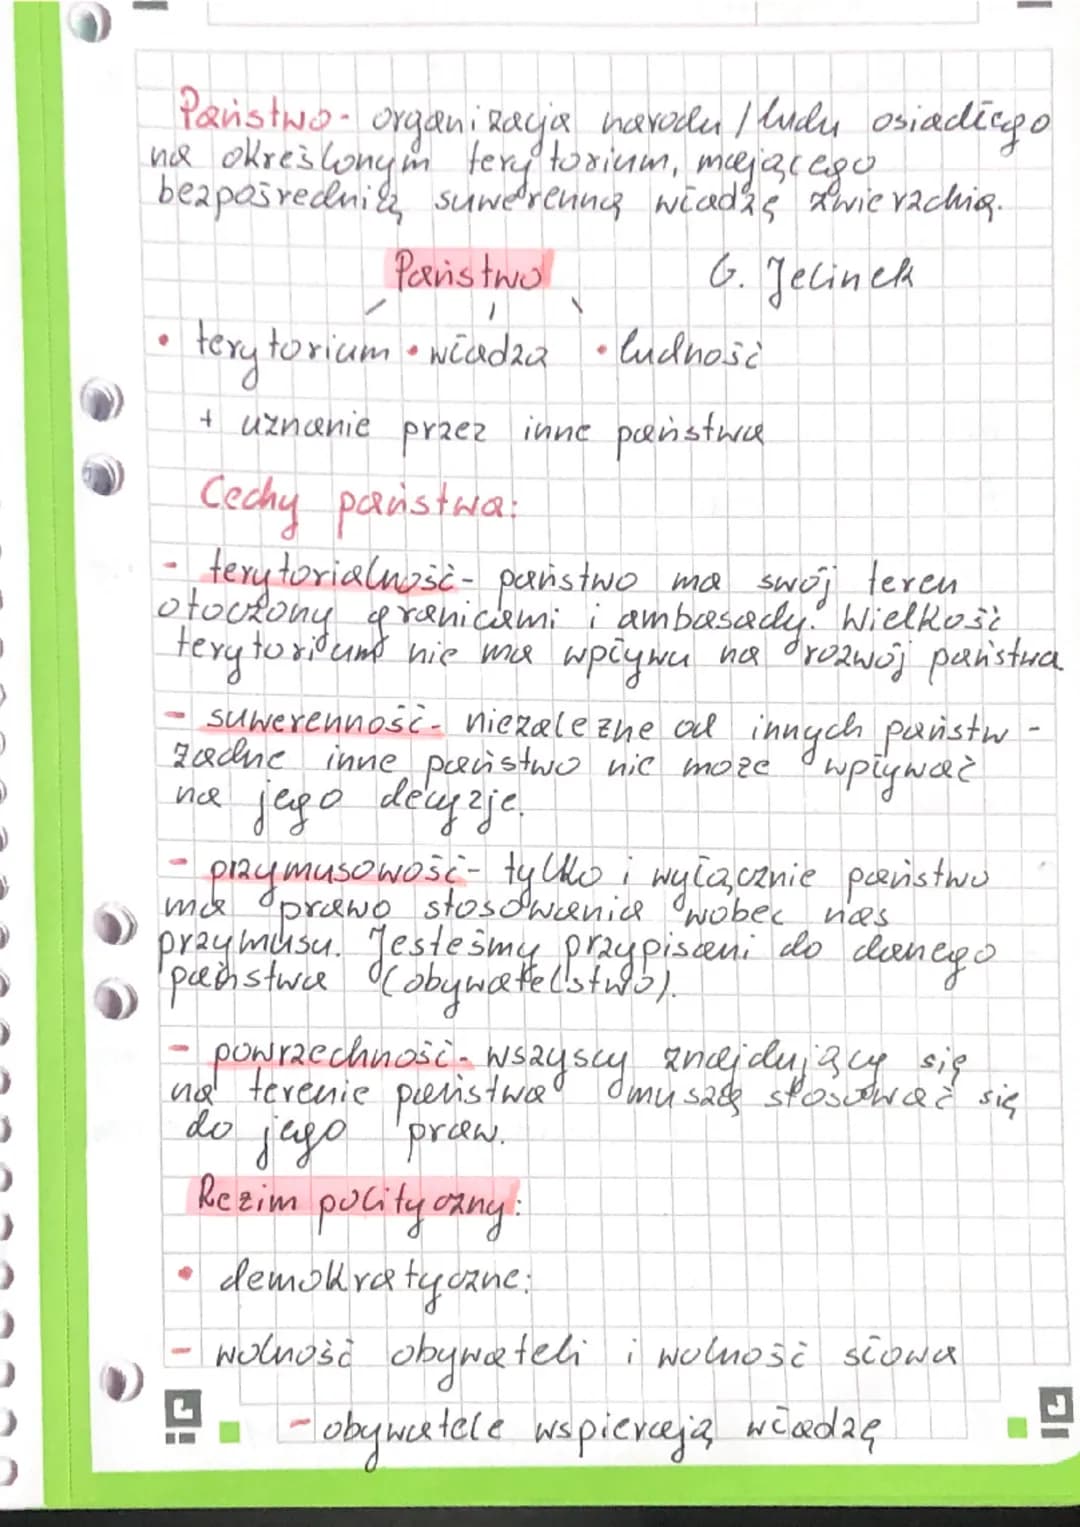 Państwo - organizacja narodu / ludu osiadłego
na określonym terytorium, mającego
bezpośrednią suwerenną władzę zwierzchią.
Państwo G. Jelinek
• terytorium • władza • ludność
+ uznanie przez inne państwa
Cechy państwa:
- terytorialność - państwo ma swój teren
otoczony granicami i ambasady. Wielkość
terytorium nie ma wpływu na rozwój państwa
- suwerenność - niezależne od innych państw -
żadne inne państwo nie może wpływać
na jego decyzje.
- przymusowość - tylko i wyłącznie państwo
ma prawo stosowania wobec nas
przymusu. Jesteśmy przypisani do danego
państwa (obywatelstwo).
- powrzechność - wszyscy znajdujący się
na terenie państwa muszą stosować się
do jego praw.
Reżim polityczny:
• demokratyczne:
- wolność obywateli i wolność słowa
- obywatele wspierają władzę